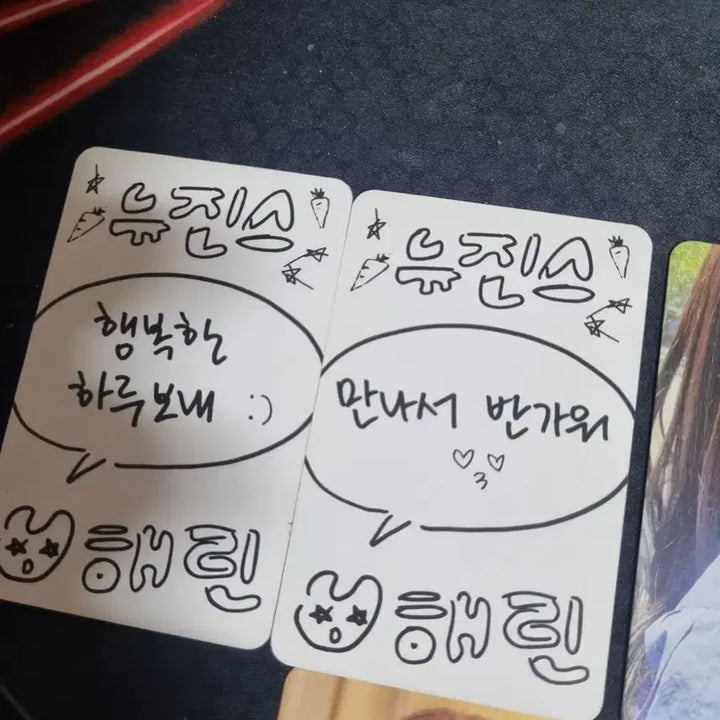 뉴진스
행복한
하루보내 :)
해린
뉴진스
만나서 반가워
해린